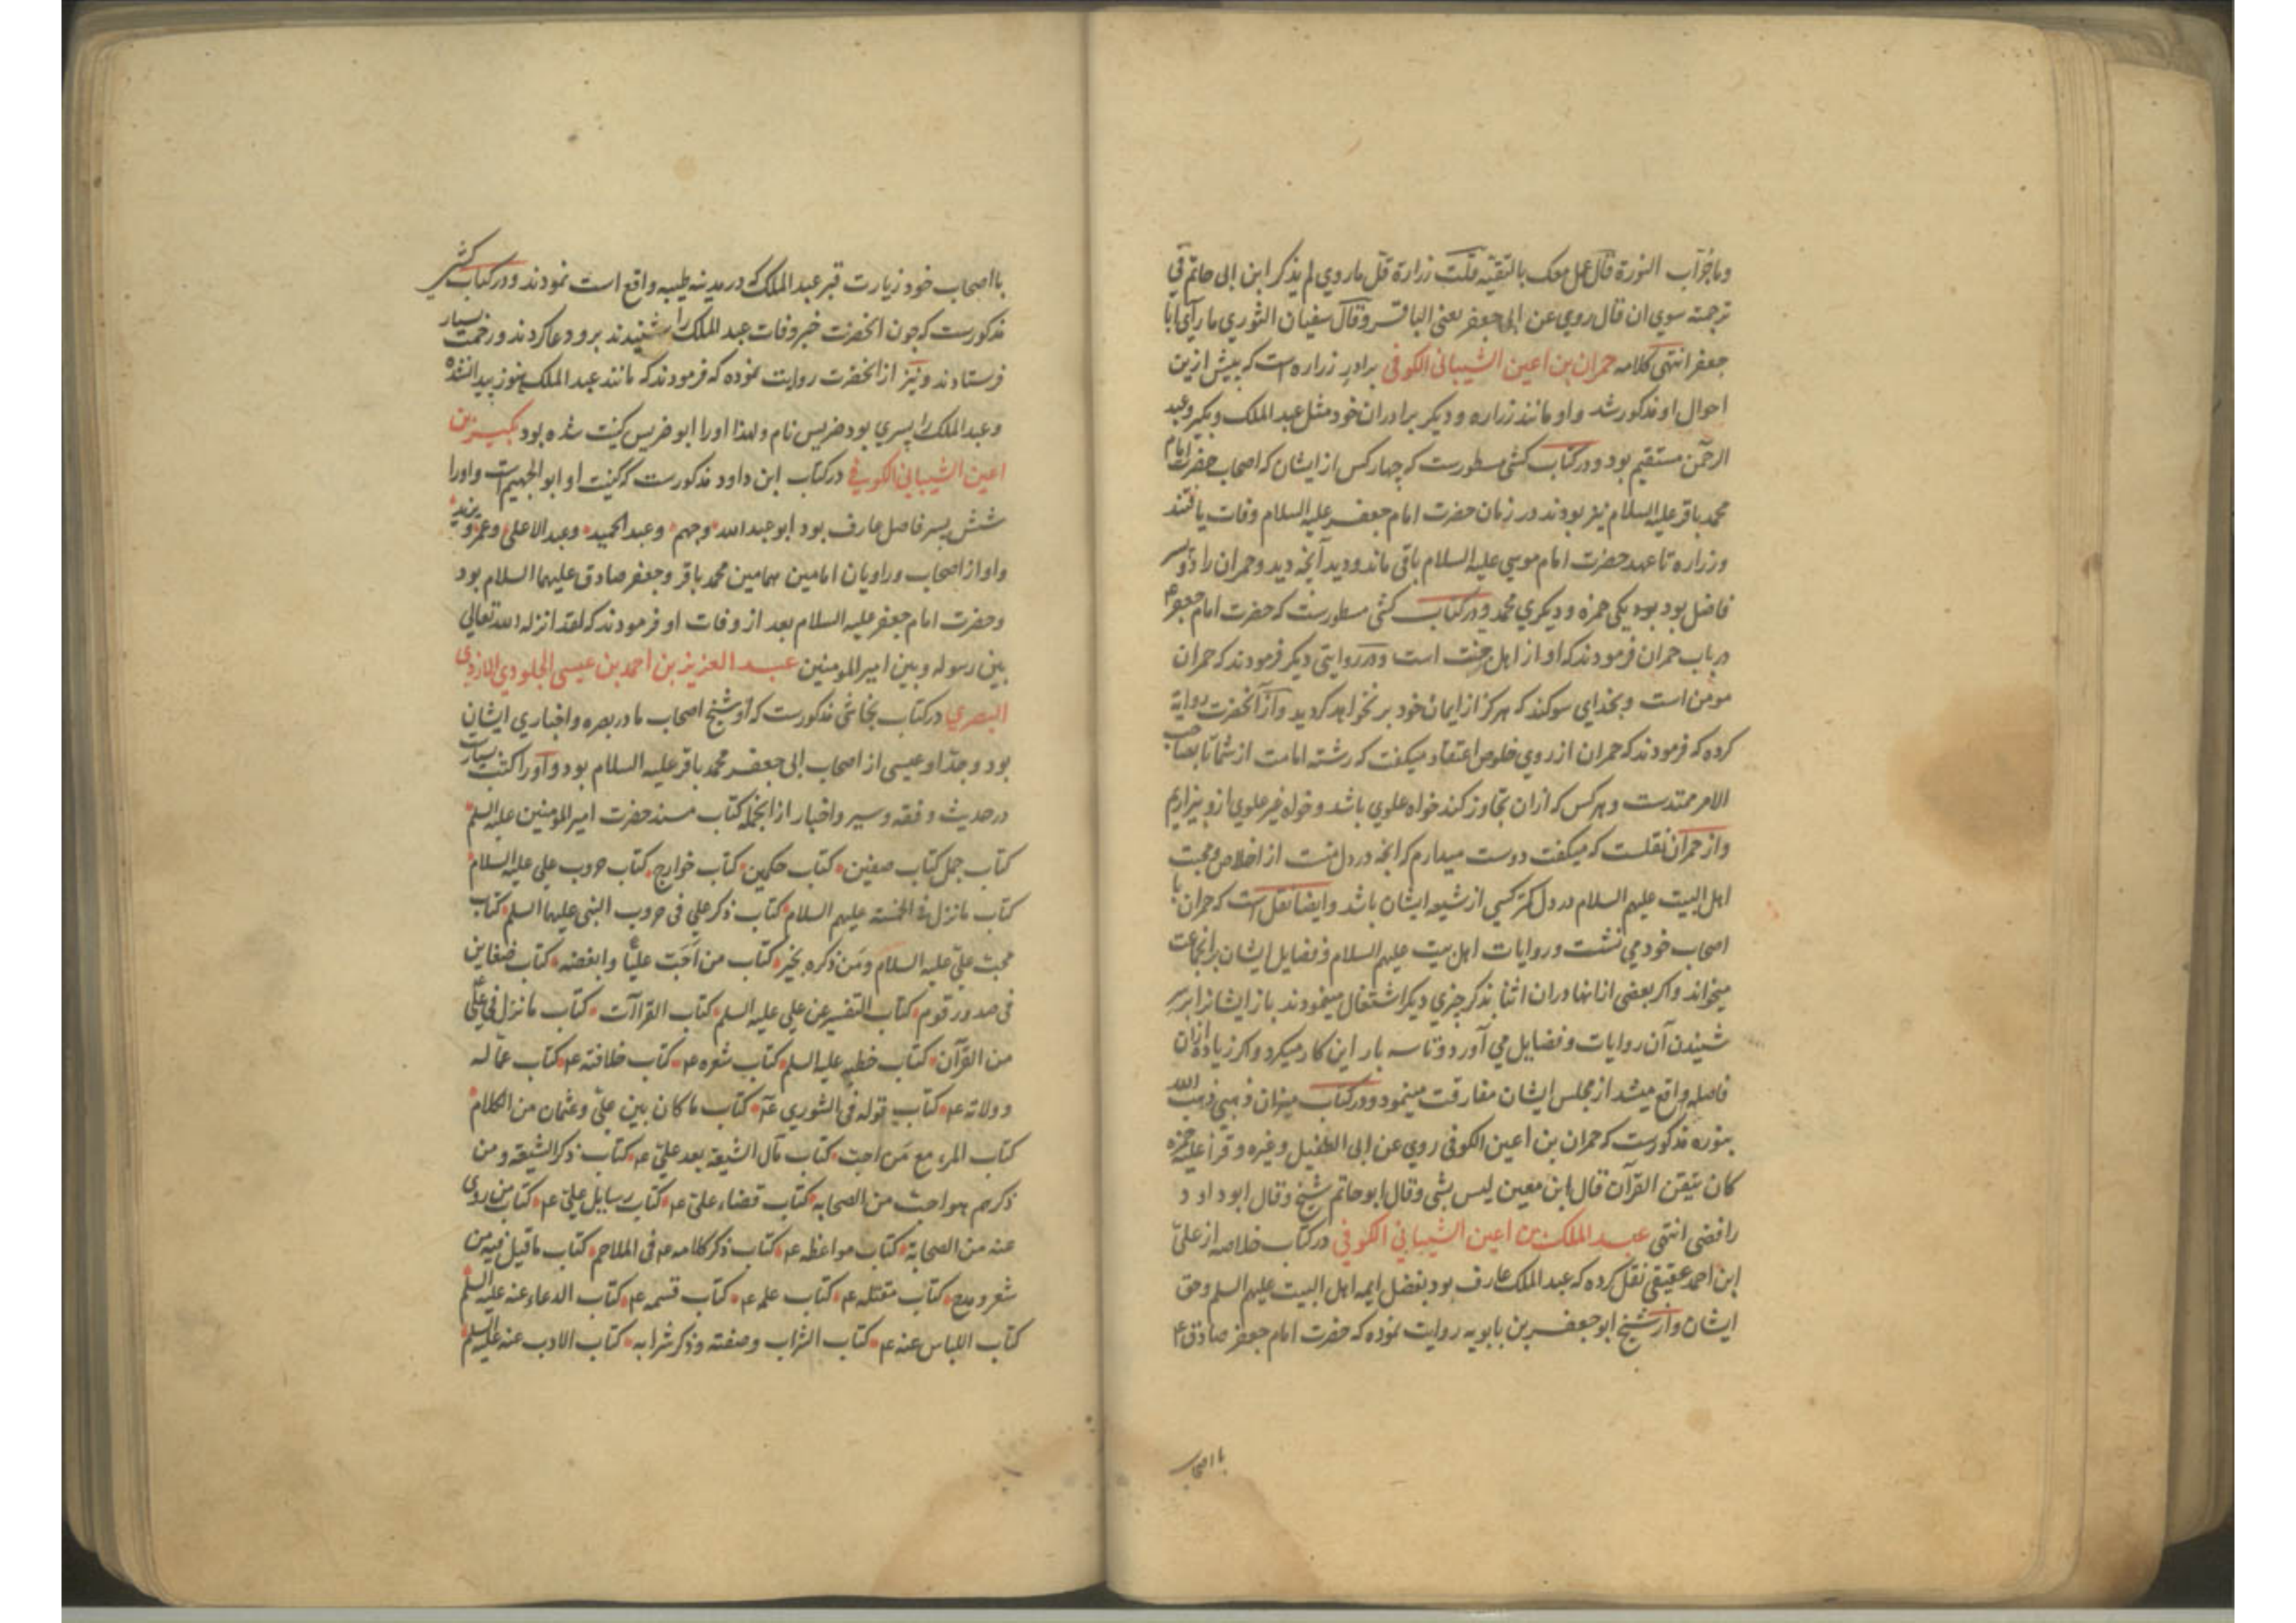 وما جواب النورة قال عمل معک بالتقیه قلت زرارة قل ما روی لم یذکر ابن ابی حاتم فی
ترجمته سوی ان قال روی عن ابی جعفر یعنی الباقر وقال سفیان الثوری ما رآی ابا
جعفر انتهی کلامه حمران بن اعین الشیبانی الکوفی برادر زراره است که پیش ازین
احوال او مذکور شد و او مانند زراره و دیکر برادران خود مثل عبد الملک و بکیر و عبد
الرحمن مستقیم بود و در کتاب کشی مسطورست که چهار کس از ایشان که اصحاب حضرت امام
محمد باقر علیه السلام نیز بودند در زمان حضرت امام جعفر علیه السلام وفات یافتند
و زراره تا عهد حضرت امام موسی علیه السلام باقی ماند و دید آنچه دید و حمران را دو پسر
فاضل بود یکی حمزه و دیکری محمد و در کتاب کشی مسطورست که حضرت امام جعفر ع
در باب حمران فرمودند که او از اهل جنت است و در روایتی دیکر فرمودند که حمران
مومن است و بخدای سوکند که هرکز از ایمان خود بر نخواهد کردید و از آنحضرت روایة
کرده که فرمودند که حمران از روی خلوص اعتقاد میکفت که رشته امامت از شما تا بصاحب
الامر ممتدست و هر کس که ازان تجاوز کند خواه علوی باشد و خواه غیر علوی ازو بیزاریم
و از حمران نقلست که میکفت دوست میدارم که آنچه در دل منست از اخلاص و محبت
اهل البیت علیهم السلام در دل کمتر کسی از شیعه ایشان باشد و ایضا نقل است که حمران با
اصحاب خود می نشست و روایات اهل بیت علیهم السلام و فضایل ایشان بر آنجماعت
میخواند و اکر بعضی از انها دران اثنا بذکر چیزی دیکر اشتغال مینمودند باز ایشانرا بر سر
شنیدن آن روایات و فضایل می آورد و تا سه بار این کار میکرد و اکر زیاده ازان
فاصله واقع میشد از مجلس ایشان مفارقت مینمود و در کتاب میزان ذهبی ذهب الله
بنوره مذکورست که حمران بن اعین الکوفی روی عن ابی الطفیل وغیره و قرأ علیه حمزه
کان یتقن القرآن قال ابن معین لیس بشی وقال ابو حاتم شیخ وقال ابو داود
رافضی انتهی عبد الملک بن اعین الشیبانی الکوفی در کتاب خلاصه از علی
ابن احمد عقیقی نقل کرده که عبد الملک عارف بود بفضل ایمه اهل البیت علیهم السلم و حق
ایشان و از شیخ ابو جعفر بن بابویه روایت نموده که حضرت امام جعفر صادق ع
با اصحاب
با اصحاب خود زیارت قبر عبد الملک که در مدینه طیبه واقع است نمودند و در کتاب کشی
مذکورست که چون انحضرت خبر وفات عبد الملک را شنیدند برو دعا کردند و رحمت بسیار
فرستادند و نیز از انحضرت روایت نموده که فرمودند که مانند عبد الملک هنوز پیدا نشده
و عبد الملک را پسری بود ضریس نام و لهذا او را ابو ضریس کنیت شده بود بکیر بن
اعین الشیبانی الکوفی در کتاب ابن داود مذکورست که کنیت او ابو الجهیم است و او را
شش پسر فاضل عارف بود ابو عبد الله و جهم و عبد الحمید و عبد الاعلی و عمر و یزید
و او از اصحاب و راویان امامین همامین محمد باقر و جعفر صادق علیهما السلام بود
و حضرت امام جعفر علیه السلام بعد از وفات او فرمودند که لقد انزله الله تعالی
بین رسوله و بین امیر المومنین عبد العزیز بن احمد بن عیسی الجلودی الازدی
البصری در کتاب نجاشی مذکورست که او شیخ اصحاب ما در بصره و اخباری ایشان
بود و جد او عیسی از اصحاب ابی جعفر محمد باقر علیه السلام بود و او را کتب بسیارست
در حدیث و فقه و سیر و اخبار از انجمله کتاب مسند حضرت امیر المومنین علیه السلم
کتاب جمل کتاب صفین کتاب حکمین کتاب خوارج کتاب حروب علی علیه السلام
کتاب ما نزل فی الخمسة علیهم السلام کتاب ذکر علی فی حروب النبی علیهما السلم کتاب
محبت علی علیه السلام ومن ذکره بخیر کتاب من احب علیا وابغضه کتاب ضغاین
فی صدور قوم کتاب التفسیر عن علی علیه السلم کتاب القراآت کتاب ما نزل فی علی
من القرآن کتاب خطبه علیه السلم کتاب شعره ع کتاب خلافته ع کتاب عماله
و ولاته ع کتاب قوله فی الشوری ع کتاب ما کان بین علی وعثمان من الکلام
کتاب المرء مع من احب کتاب مآل الشیعة بعد علی ع کتاب ذکر الشیعة ومن
ذکرهم هو احب من الصحابه کتاب قضاء علی ع کتاب رسایل علی ع کتاب من روی
عنه من الصحابة کتاب مواعظه ع کتاب ذکر کلامه ع فی الملاحم کتاب ما قیل فیه من
شعر و مدح کتاب مقتله ع کتاب علمه ع کتاب قسمه ع کتاب الدعاء عنه علیه السلم
کتاب اللباس عنه ع کتاب الشراب وصفته وذکر شرابه کتاب الادب عنه علیه السلم